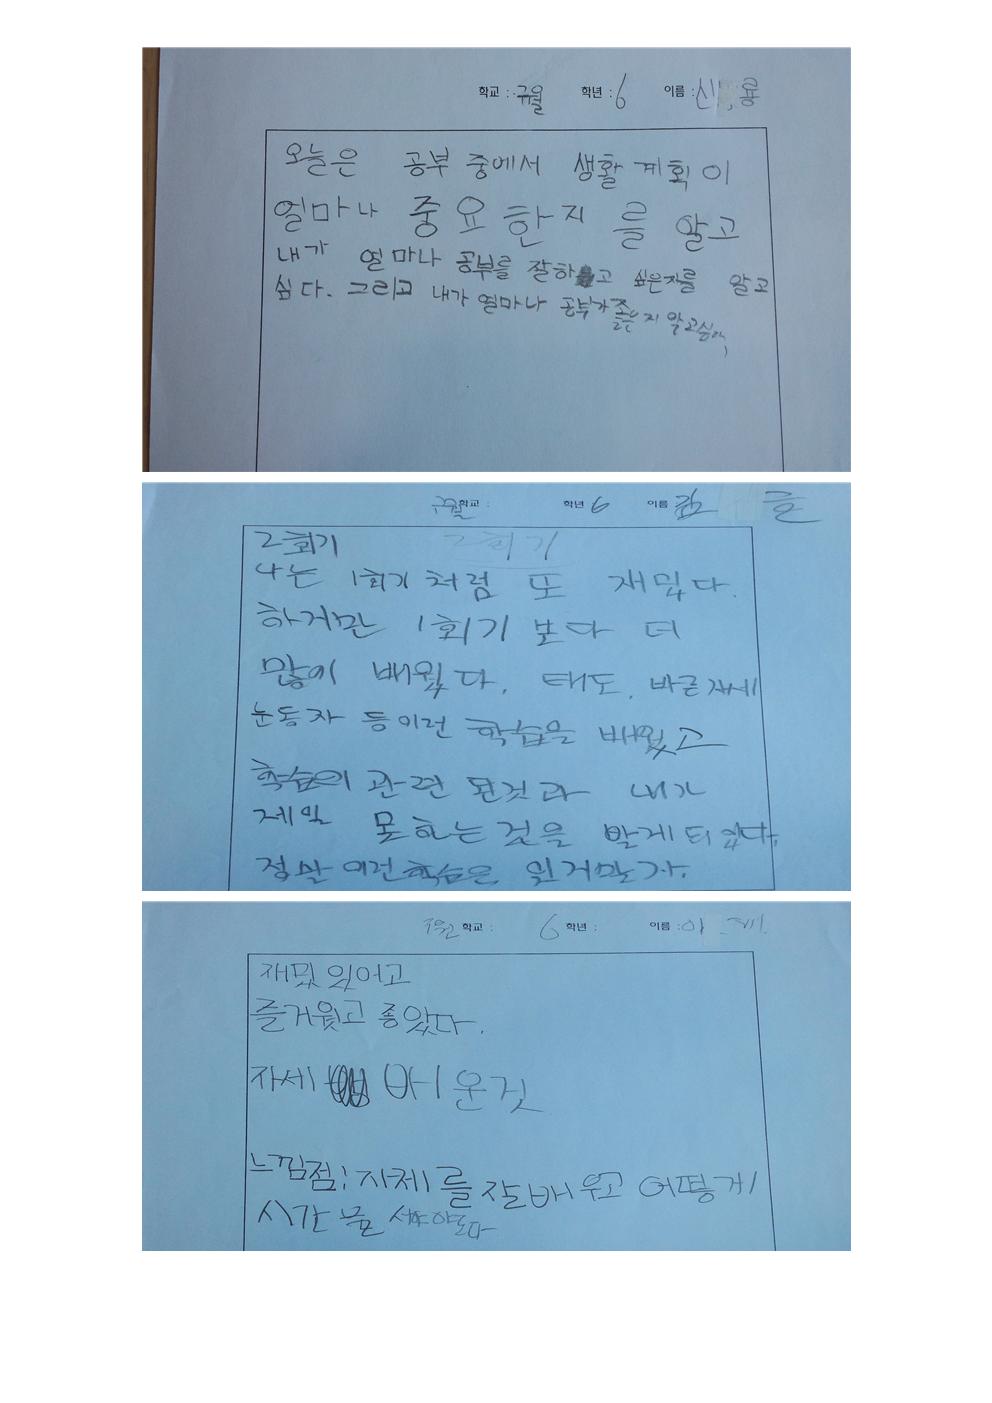 학교 : 구월 학년 : 6 이름 : 신 룡
오늘은 공부 중에서 생활 계획이
얼마나 중요한지를 알고
내가 얼마나 공부를 잘하고 싶은지를 알고
싶다. 그리고 내가 얼마나 공부가 좋은지 알고싶다,
구월학교 : 학년 6 이름 김 은
2회기 2회기
나는 1회기처럼 또 재밌다.
하지만 1회기 보다 더
많이 배웠다. 태도, 바른자세
눈동자 등 이런 학습을 배웠고
학습의 관련 된것과 내가
제일 못하는 것을 알게 되었다.
정말 이런학습은
구월 학교 : 6 학년 : 이름 : 이
재밌있어고
즐거웠고 좋았다.
자세 배운것
느낌점; 자세를 잘배우고 어떻게
시간을